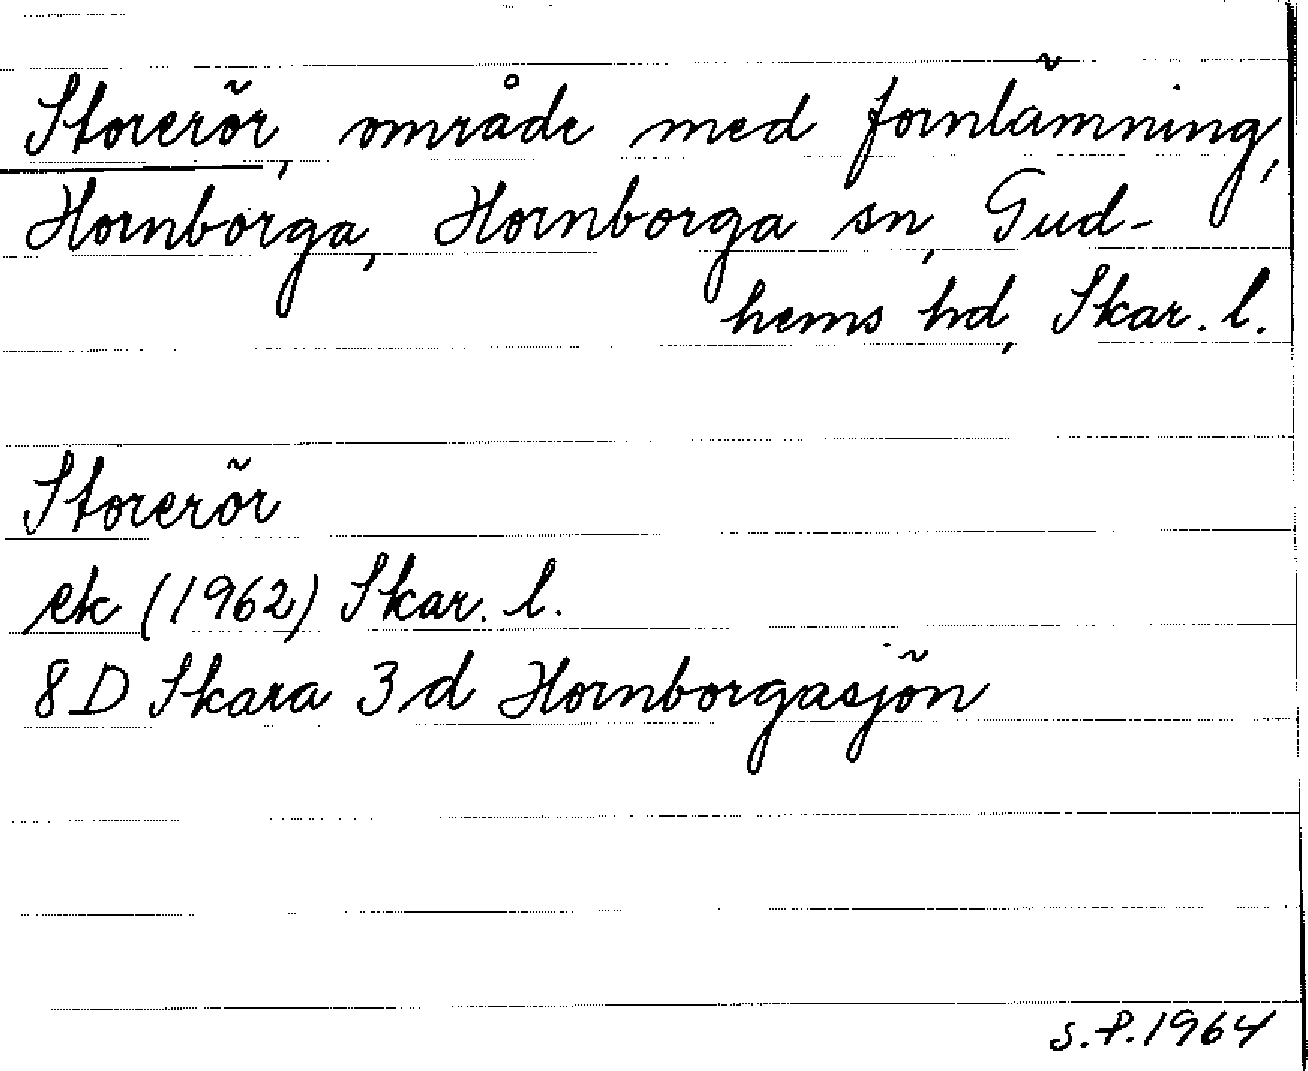 Storerör, område med fornlämning,
Hornborga, Hornborga sn, Gud-
hems hd, Skar. l.
Storerör
ek (1962) Skar. l.
8D Skara 3d Hornborgasjön
S.P.1964